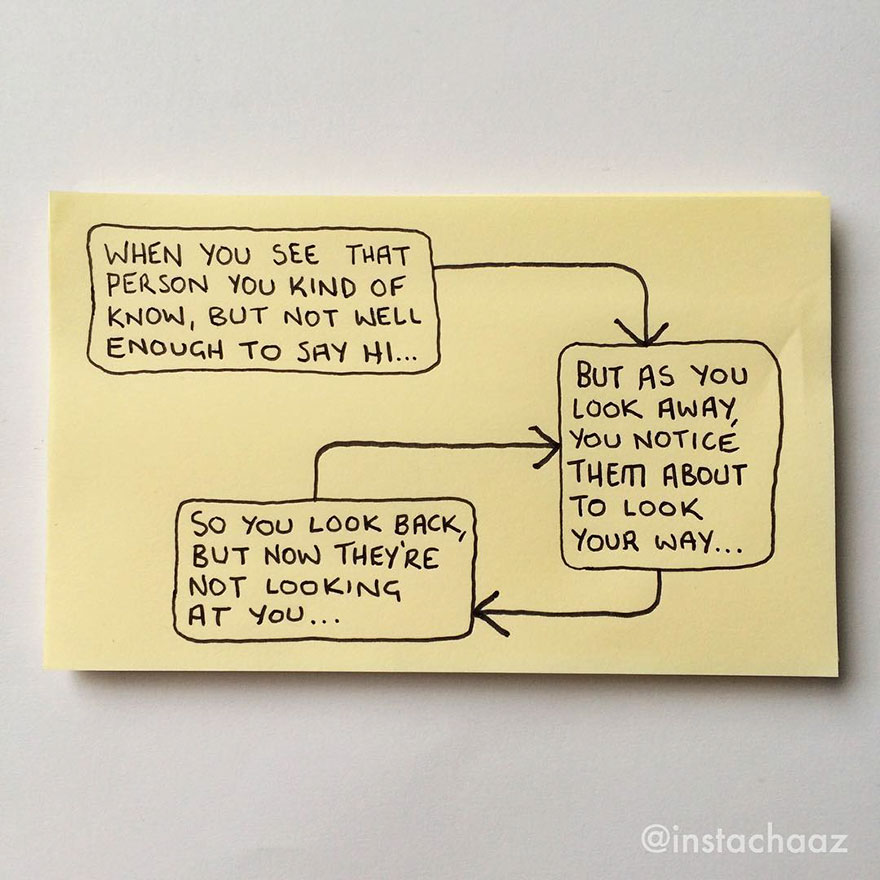 WHEN YOU SEE THAT
PERSON YOU KIND OF
KNOW, BUT NOT WELL
ENOUGH TO SAY HI...
BUT AS YOU
LOOK AWAY,
YOU NOTICE
THEM ABOUT
TO LOOK
YOUR WAY...
SO YOU LOOK BACK,
BUT NOW THEY'RE
NOT LOOKING
AT YOU...
@instachaaz